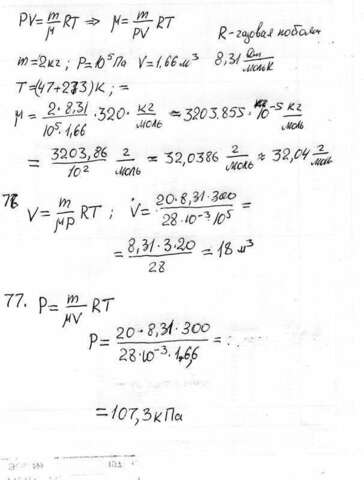 PV = m/μ RT ⇒ μ = m/PV RT
R - газовая
m = 2кг ; P = 10⁵ Па V = 1,66 м³ 8,31
T = (47+273)K ; =
μ = 2·8,31/10⁵·1,66 · 320 · кг/моль ≈ 3203.855 · 10⁻⁵ кг/моль
= 3203,86/10² г/моль ≈ 32,0386 г/моль ≈ 32,04 г/моль
V = m/μP RT ; V = 20·8,31·300/28·10⁻³·10⁵ =
= 8,31·3·20/28 = 18 м³
77. P = m/μV RT
P = 20·8,31·300/28·10⁻³·1,66 =
= 107,3 кПа